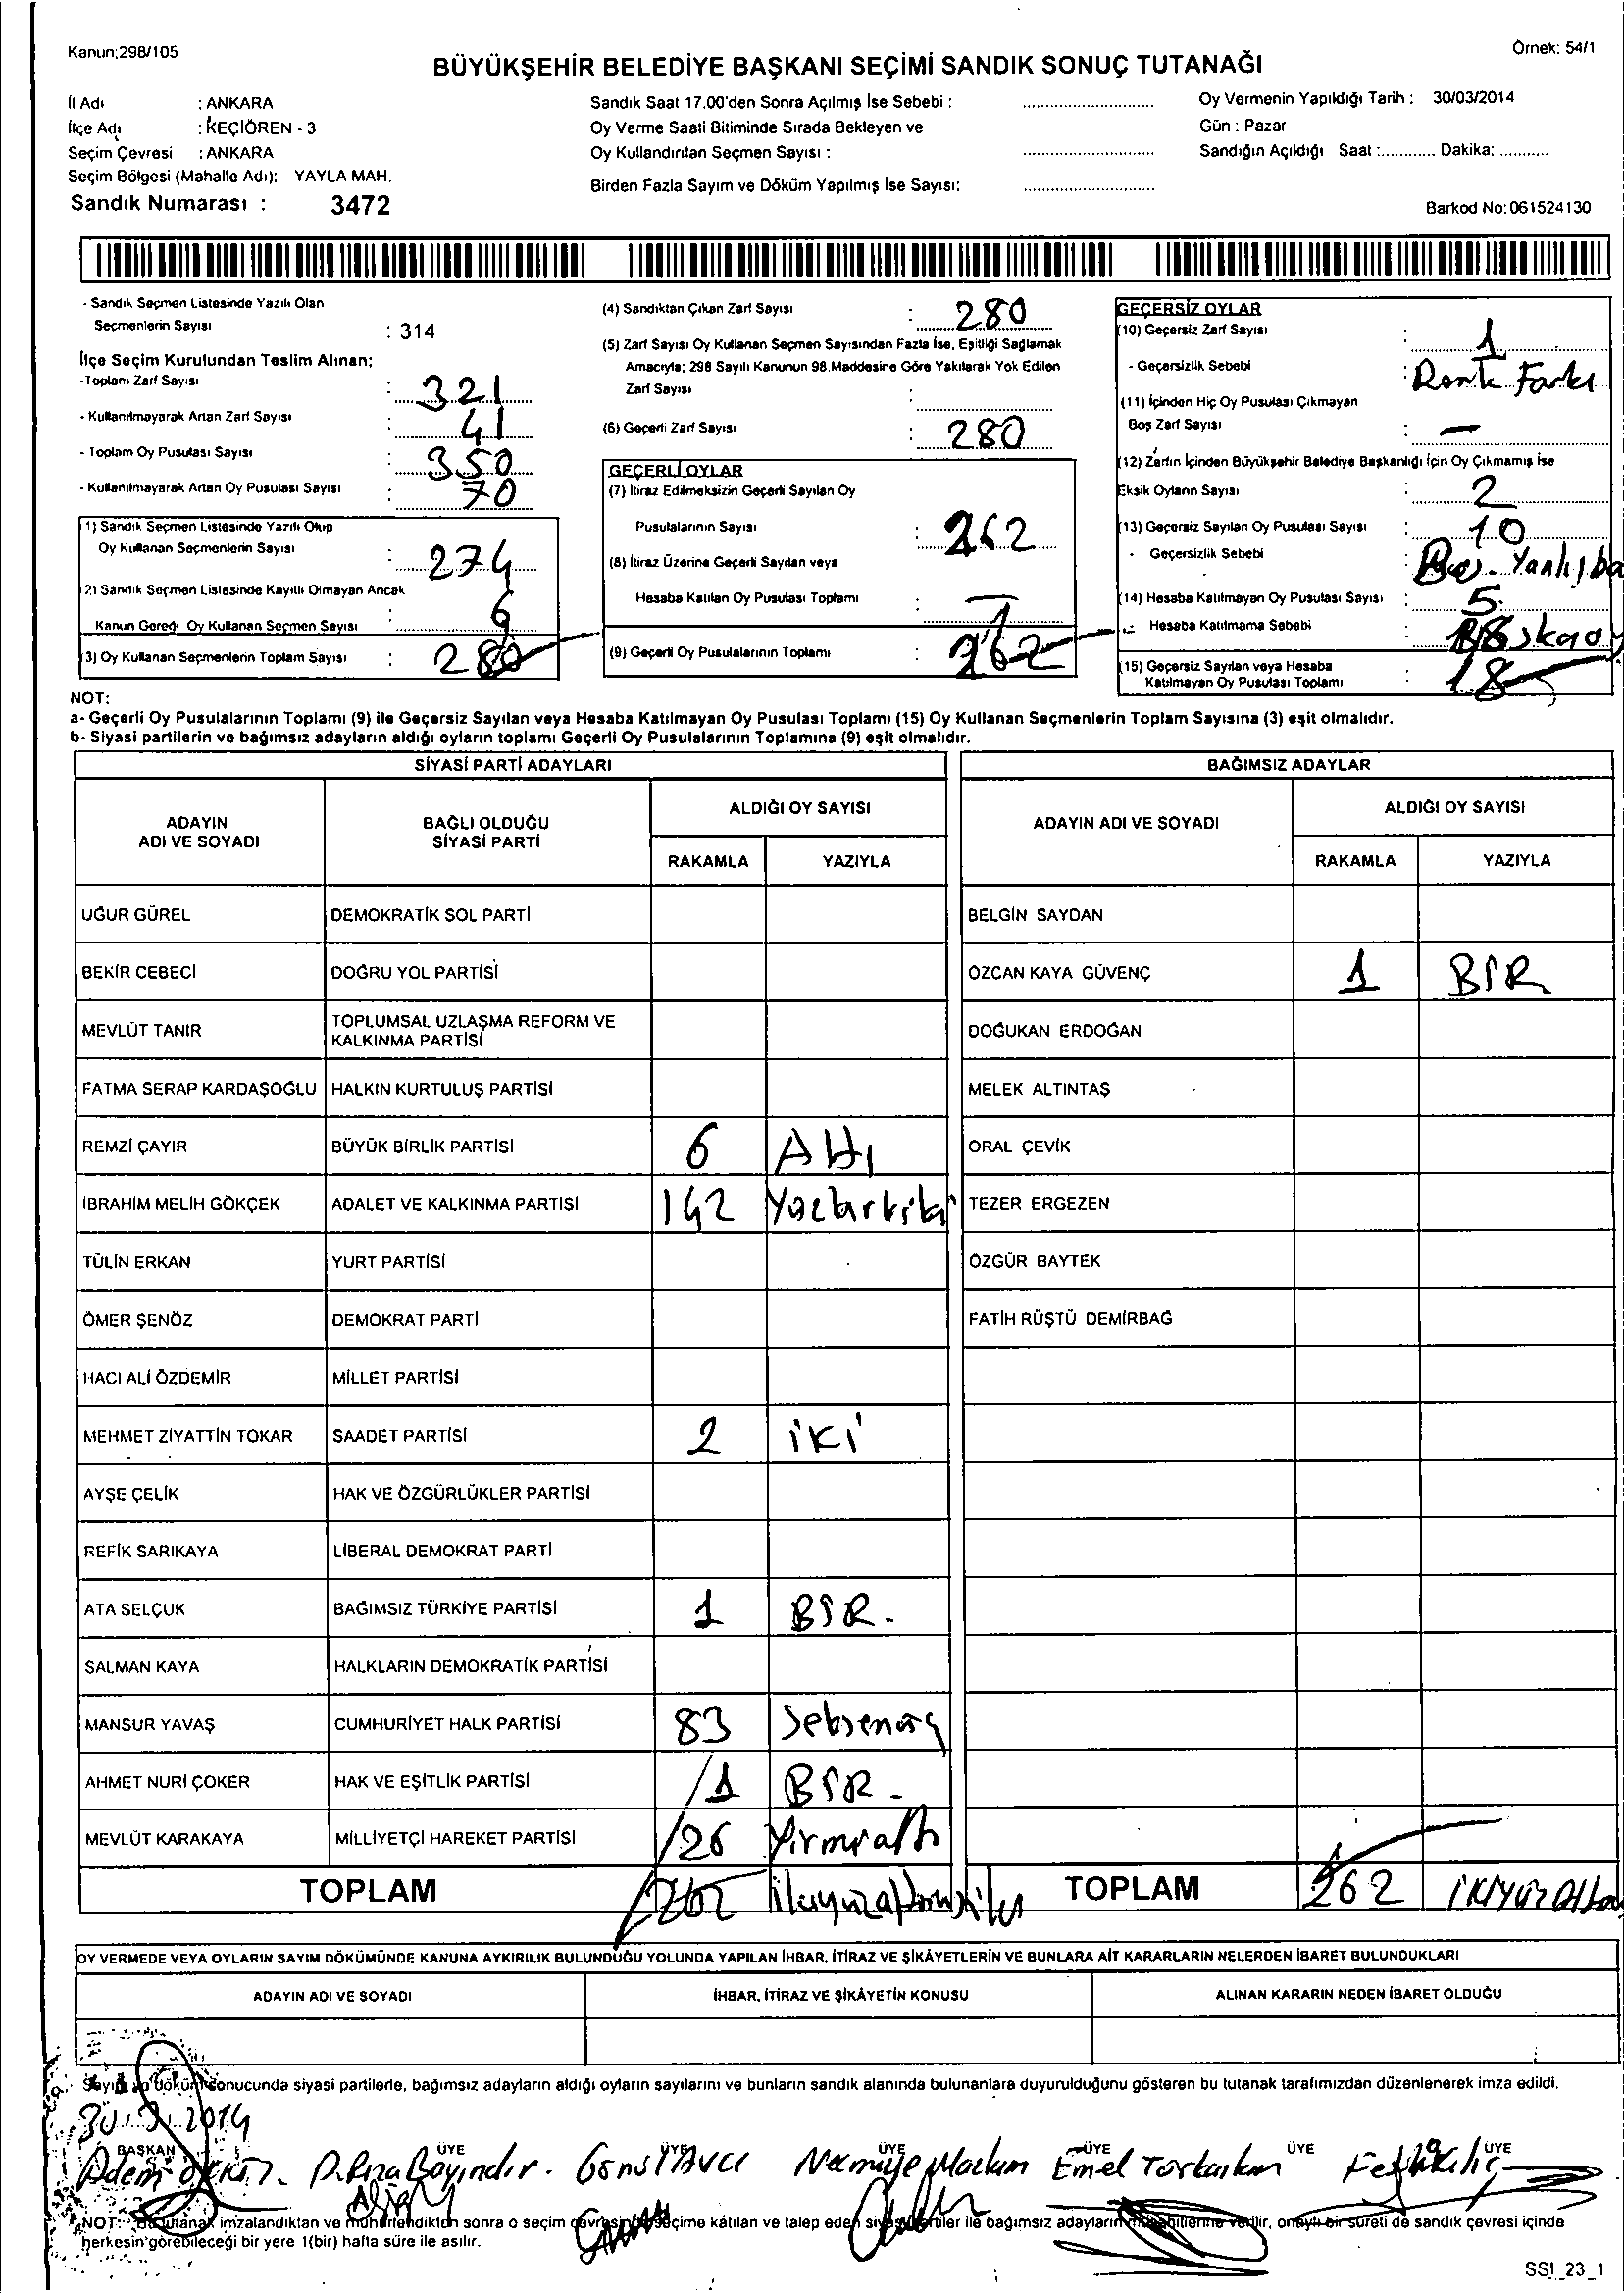 Kanun:298/105
Örnek: 54/1
BÜYÜKŞEHİR BELEDİYE BAŞKANI SEÇİMİ SANDIK SONUÇ TUTANAĞI
İl Adı : ANKARA
İlçe Adı : KEÇİÖREN - 3
Seçim Çevresi : ANKARA
Seçim Bölgesi (Mahalle Adı): YAYLA MAH.
Sandık Numarası : 3472
Sandık Saat 17.00'den Sonra Açılmış İse Sebebi :
Oy Verme Saati Bitiminde Sırada Bekleyen ve
Oy Kullandırılan Seçmen Sayısı :
Birden Fazla Sayım ve Döküm Yapılmış İse Sayısı:
Oy Vermenin Yapıldığı Tarih : 30/03/2014
Gün : Pazar
Sandığın Açıldığı Saat :............ Dakika:............
Barkod No:061524130
- Sandık Seçmen Listesinde Yazılı Olan
Seçmenlerin Sayısı : 314
İlçe Seçim Kurulundan Teslim Alınan:
-Toplam Zarf Sayısı : 321
- Kullanılmayarak Artan Zarf Sayısı : 41
- Toplam Oy Pusulası Sayısı : 350
- Kullanılmayarak Artan Oy Pusulası Sayısı : 70
1) Sandık Seçmen Listesinde Yazılı Olup
Oy Kullanan Seçmenlerin Sayısı : 274
2) Sandık Seçmen Listesinde Kayıtlı Olmayan Ancak
Kanun Gereği Oy Kullanan Seçmen Sayısı : 6
(3) Oy Kullanan Seçmenlerin Toplam Sayısı : 280
(4) Sandıktan Çıkan Zarf Sayısı : 280
(5) Zarf Sayısı Oy Kullanan Seçmen Sayısından Fazla İse, Eşitliği Sağlamak
Amacıyla; 298 Sayılı Kanunun 98.Maddesine Göre Yakılarak Yok Edilen
Zarf Sayısı :
(6) Geçerli Zarf Sayısı : 280
GEÇERLİ OYLAR
(7) İtiraz Edilmeksizin Geçerli Sayılan Oy
Pusulalarının Sayısı : 262
(8) İtiraz Üzerine Geçerli Sayılan veya
Hesaba Katılan Oy Pusulası Toplamı : —
(9) Geçerli Oy Pusulalarının Toplamı : 262
GEÇERSİZ OYLAR
(10) Geçersiz Zarf Sayısı : 1
- Geçersizlik Sebebi : Renk Farkı
(11) İçinden Hiç Oy Pusulası Çıkmayan
Boş Zarf Sayısı : —
(12) Zarfın İçinden Büyükşehir Belediye Başkanlığı İçin Oy Çıkmamış İse
Eksik Oyların Sayısı : 2
(13) Geçersiz Sayılan Oy Pusulası Sayısı : 10
- Geçersizlik Sebebi Yanlış ba
(14) Hesaba Katılmayan Oy Pusulası Sayısı : 5
- Hesaba Katılmama Sebebi
(15) Geçersiz Sayılan veya Hesaba
Katılmayan Oy Pusulası Toplamı : 18
NOT:
a- Geçerli Oy Pusulalarının Toplamı (9) ile Geçersiz Sayılan veya Hesaba Katılmayan Oy Pusulası Toplamı (15) Oy Kullanan Seçmenlerin Toplam Sayısına (3) eşit olmalıdır.
b- Siyasi partilerin ve bağımsız adayların aldığı oyların toplamı Geçerli Oy Pusulalarının Toplamına (9) eşit olmalıdır.
SİYASİ PARTİ ADAYLARI
ADAYIN
ADI VE SOYADI
BAĞLI OLDUĞU
SİYASİ PARTİ
ALDIĞI OY SAYISI
RAKAMLA YAZIYLA
UĞUR GÜREL DEMOKRATİK SOL PARTİ
BEKİR CEBECİ DOĞRU YOL PARTİSİ
MEVLÜT TANIR TOPLUMSAL UZLAŞMA REFORM VE
KALKINMA PARTİSİ
FATMA SERAP KARDAŞOĞLU HALKIN KURTULUŞ PARTİSİ
REMZİ ÇAYIR BÜYÜK BİRLİK PARTİSİ 6 Altı
İBRAHİM MELİH GÖKÇEK ADALET VE KALKINMA PARTİSİ 142 Yüzkırkiki
TÜLİN ERKAN YURT PARTİSİ
ÖMER ŞENÖZ DEMOKRAT PARTİ
HACI ALİ ÖZDEMİR MİLLET PARTİSİ
MEHMET ZİYATTİN TOKAR SAADET PARTİSİ 2 iki
AYŞE ÇELİK HAK VE ÖZGÜRLÜKLER PARTİSİ
REFİK SARIKAYA LİBERAL DEMOKRAT PARTİ
ATA SELÇUK BAĞIMSIZ TÜRKİYE PARTİSİ 1 BİR.
SALMAN KAYA HALKLARIN DEMOKRATİK PARTİSİ
MANSUR YAVAŞ CUMHURİYET HALK PARTİSİ 83 Seksenüç
AHMET NURİ ÇOKER HAK VE EŞİTLİK PARTİSİ 1 BİR -
MEVLÜT KARAKAYA MİLLİYETÇİ HAREKET PARTİSİ 26 Yirmialtı
TOPLAM 262 ikiyüzaltmışiki
BAĞIMSIZ ADAYLAR
ADAYIN ADI VE SOYADI
ALDIĞI OY SAYISI
RAKAMLA YAZIYLA
BELGİN SAYDAN
ÖZCAN KAYA GÜVENÇ 1 BİR
DOĞUKAN ERDOĞAN
MELEK ALTINTAŞ
ORAL ÇEVİK
TEZER ERGEZEN
ÖZGÜR BAYTEK
FATİH RÜŞTÜ DEMİRBAĞ
TOPLAM 262
OY VERMEDE VEYA OYLARIN SAYIM DÖKÜMÜNDE KANUNA AYKIRILIK BULUNDUĞU YOLUNDA YAPILAN İHBAR, İTİRAZ VE ŞİKÂYETLERİN VE BUNLARA AİT KARARLARIN NELERDEN İBARET BULUNDUKLARI
ADAYIN ADI VE SOYADI
İHBAR, İTİRAZ VE ŞİKÂYETİN KONUSU
ALINAN KARARIN NEDEN İBARET OLDUĞU
Sayım ve döküm sonucunda siyasi partilerle, bağımsız adayların aldığı oyların sayılarını ve bunların sandık alanında bulunanlara duyurulduğunu gösteren bu tutanak tarafımızdan düzenlenerek imza edildi.
30.3.2014
BAŞKAN ÜYE ÜYE ÜYE ÜYE ÜYE ÜYE
Adem D.Rıza Bayındır. AVCI Emel
NOT: Bu tutanak imzalandıktan ve mühürlendikten sonra o seçim çevresinde seçime katılan ve talep eden siyasi partiler ile bağımsız adayların müşahitlerine verilir, onaylı bir sureti de sandık çevresi içinde
herkesin görebileceği bir yere 1(bir) hafta süre ile asılır.
SSI_23_1